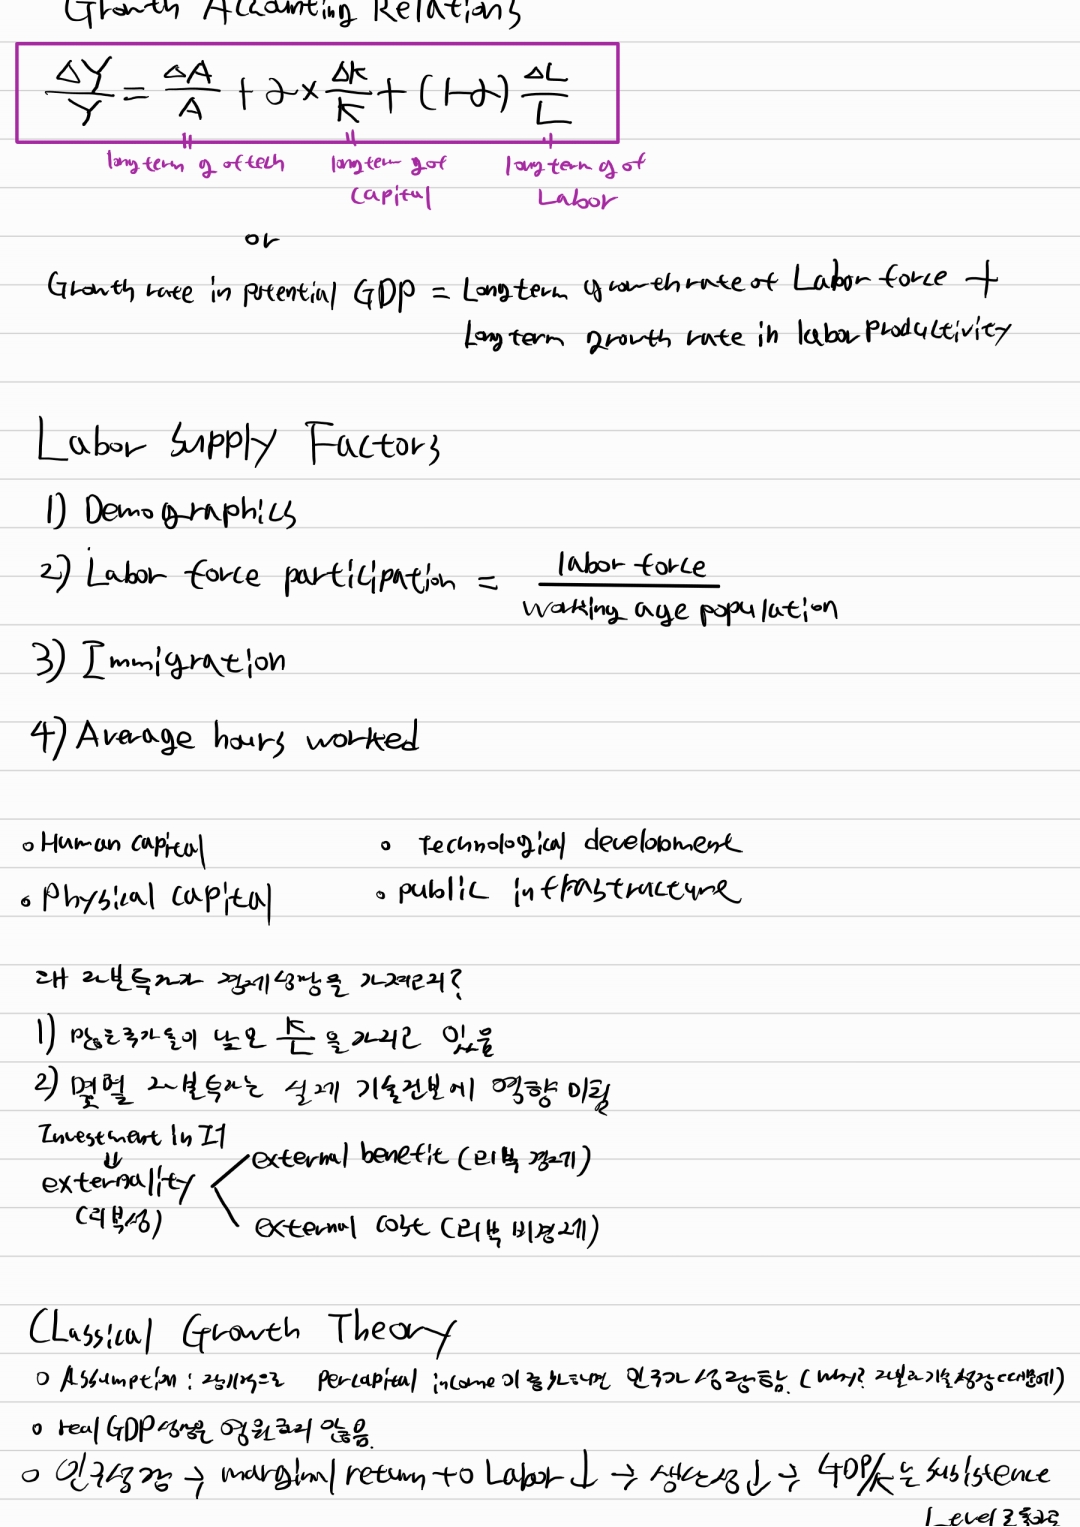 Growth Accounting Relations
ΔY/Y = ΔA/A + α × ΔK/K + (1-α) ΔL/L
long term g of tech long term g of Capital long term g of Labor
or
Growth rate in potential GDP = Long term growth rate of Labor force +
Long term growth rate in labor productivity
Labor Supply Factors
1) Demographics
2) Labor force participation = labor force / working age population
3) Immigration
4) Average hours worked
○ Human capital ○ Technological development
○ Physical capital ○ public infrastructure
왜 자본투자가 경제성장을 가져오리?
1) 많은 국가들이 낮은 K/L 을 가지고 있음
2) 몇몇 자본투자는 실제 기술진보에 영향 미침
Investment in IT
⇓
externality
(외부성)
external benefit (외부 경제)
external cost (외부 비경제)
Classical Growth Theory
○ Assumption : 장기적으로 per capital income이 증가하면 인구가 성장함. (why? 자본과 기술성장 때문에)
○ real GDP 성장은 영원하지 않음.
○ 인구성장 → marginal return to Labor ↓ → 생산성↓ → GDP/K 는 Subsistence
Level로